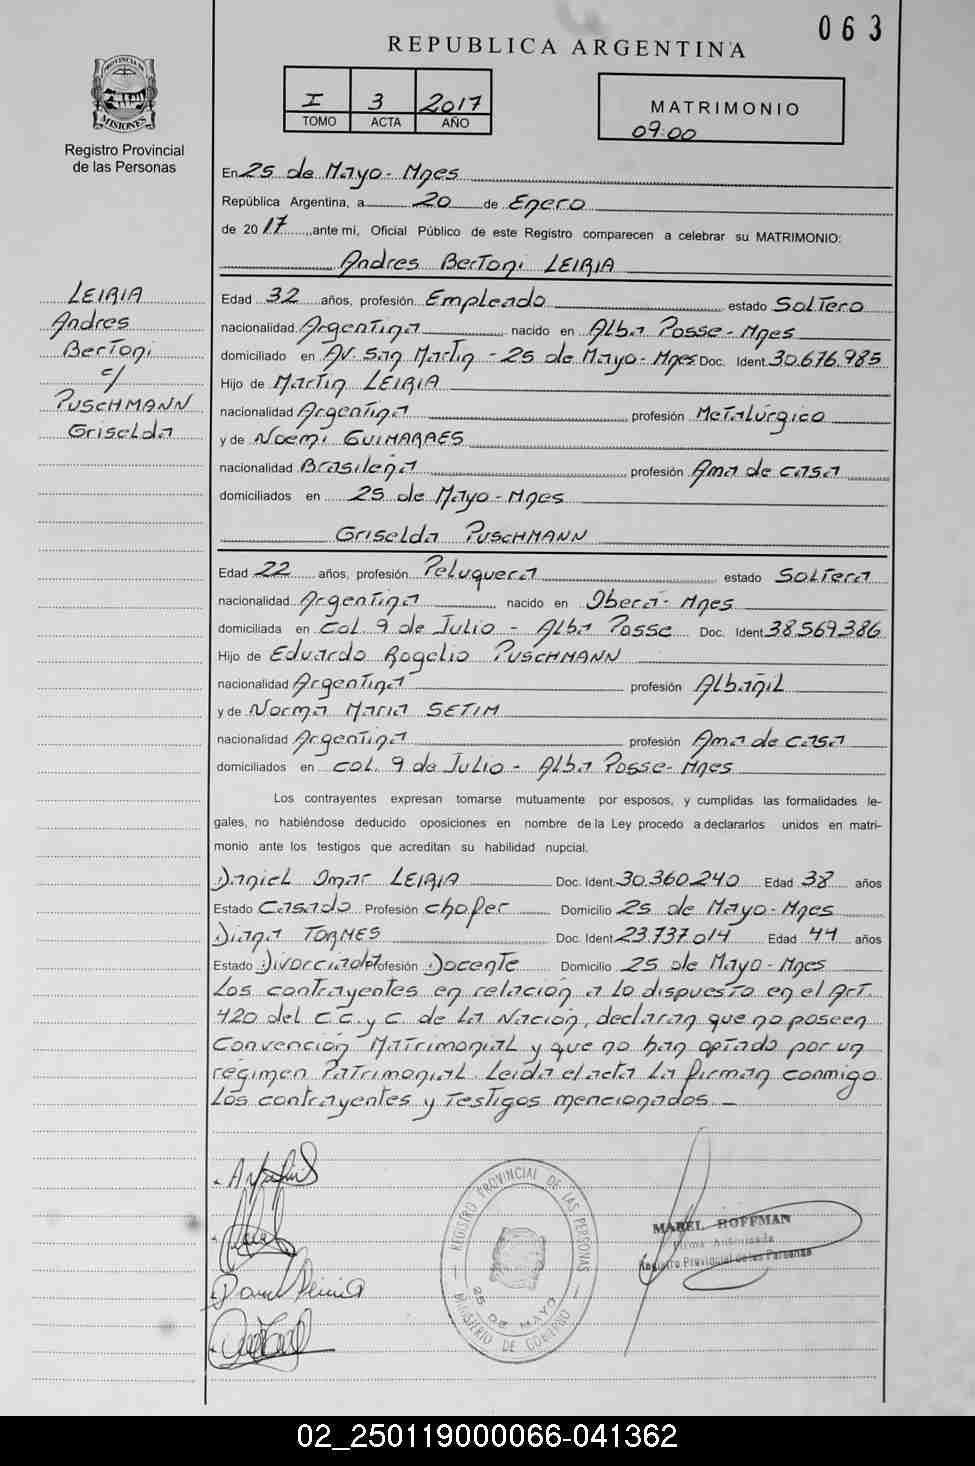 063
REPUBLICA ARGENTINA
PROVINCIA DE
MISIONES
Registro Provincial
de las Personas
I 3 2017
TOMO ACTA AÑO
MATRIMONIO
09:00
En 25 de Mayo - Mnes
República Argentina, a 20 de Enero
de 2017, ante mi, Oficial Público de este Registro comparecen a celebrar su MATRIMONIO:
Andres Bertoni LEIRIA
LEIRIA
Andres
Bertoni
c/
PUSCHMANN
Griselda
Edad 32 años, profesión Empleado estado Soltero
nacionalidad Argentina nacido en Alba Posse - Mnes
domiciliado en Av. San Martin - 25 de Mayo - Mnes Doc. Ident. 30.676.985
Hijo de Martin LEIRIA
nacionalidad Argentina profesión Metalúrgico
y de Noemi GUIMARAES
nacionalidad Brasileña profesión Ama de casa
domiciliados en 25 de Mayo - Mnes
Griselda PUSCHMANN
Edad 22 años, profesión Peluquera estado Soltera
nacionalidad Argentina nacido en Oberá - Mnes
domiciliada en Col. 9 de Julio - Alba Posse Doc. Ident. 38.569.386
Hijo de Eduardo Rogelio PUSCHMANN
nacionalidad Argentina profesión Albañil
y de Norma Maria SETIM
nacionalidad Argentina profesión Ama de casa
domiciliados en Col. 9 de Julio - Alba Posse - Mnes
Los contrayentes expresan tomarse mutuamente por esposos, y cumplidas las formalidades le-
gales, no habiéndose deducido oposiciones en nombre de la Ley procedo a declararlos unidos en matri-
monio ante los testigos que acreditan su habilidad nupcial.
Daniel Omar LEIRIA Doc. Ident. 30.360.240 Edad 38 años
Estado Casado Profesión chofer Domicilio 25 de Mayo - Mnes
Diana TORMES Doc. Ident. 23.737.014 Edad 44 años
Estado Divorciada Profesión Docente Domicilio 25 de Mayo - Mnes
Los contrayentes en relación a lo dispuesto en el Art.
420 del C.C. y C. de La Nación, declaran que no poseen
Convención Matrimonial y que no han optado por un
régimen Patrimonial. Leída el acta La firman conmigo
Los contrayentes y Testigos mencionados. -
REGISTRO PROVINCIAL DE LAS PERSONAS
25 DE MAYO
MINISTERIO DE GOBIERNO
MABEL HOFFMAN
Firma Autorizada
Registro Provincial de las Personas
02_250119000066-041362